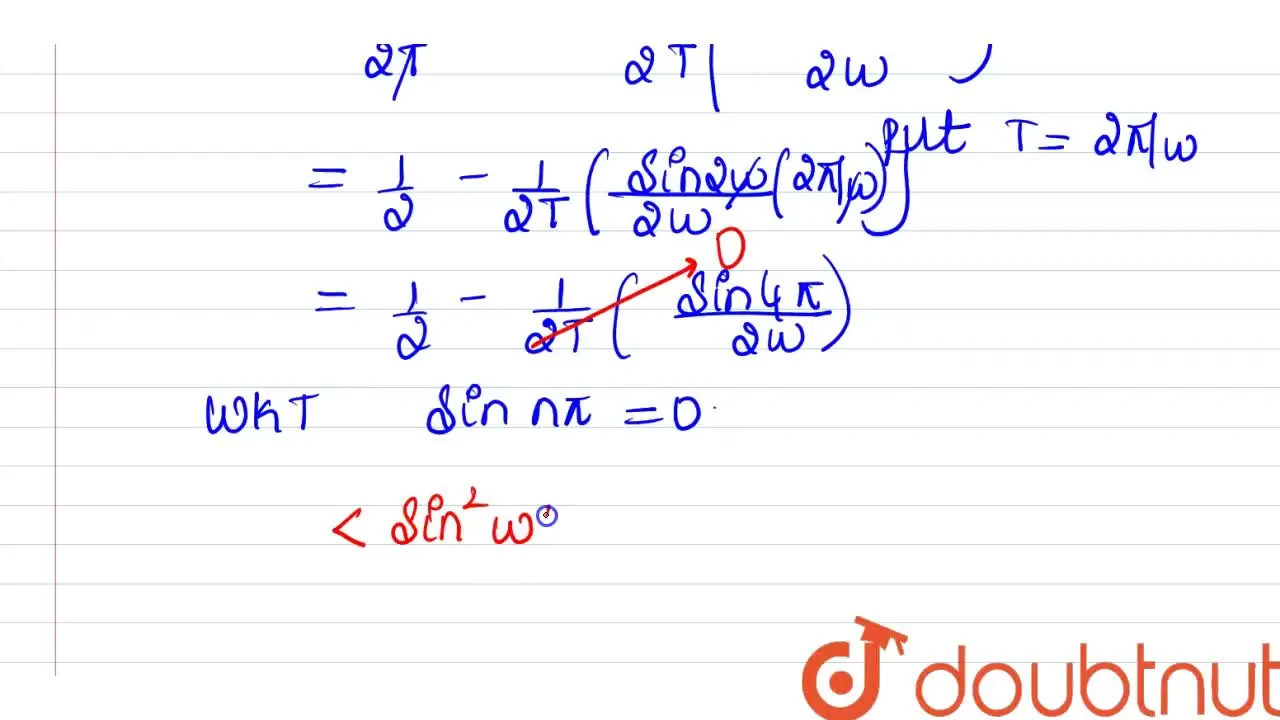 2π 2T 2ω )
put T = 2π/ω
= 1/2 - 1/2T ( sin2ω(2π/ω) / 2ω )
0
= 1/2 - 1/2T ( sin4π / 2ω )
WKT sin nπ = 0
< sin² ω
doubtnut